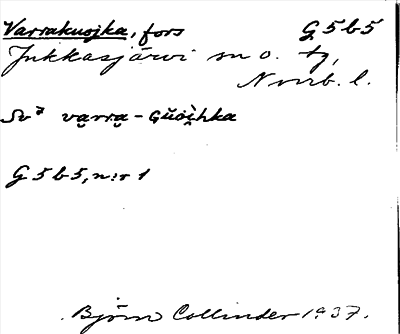 Varrakuojka, fors G5b5
Jukkasjärvi sn o. tg,
Norrb. l.
Sv
G5b5, n:r 1
Björn Collinder 1937.